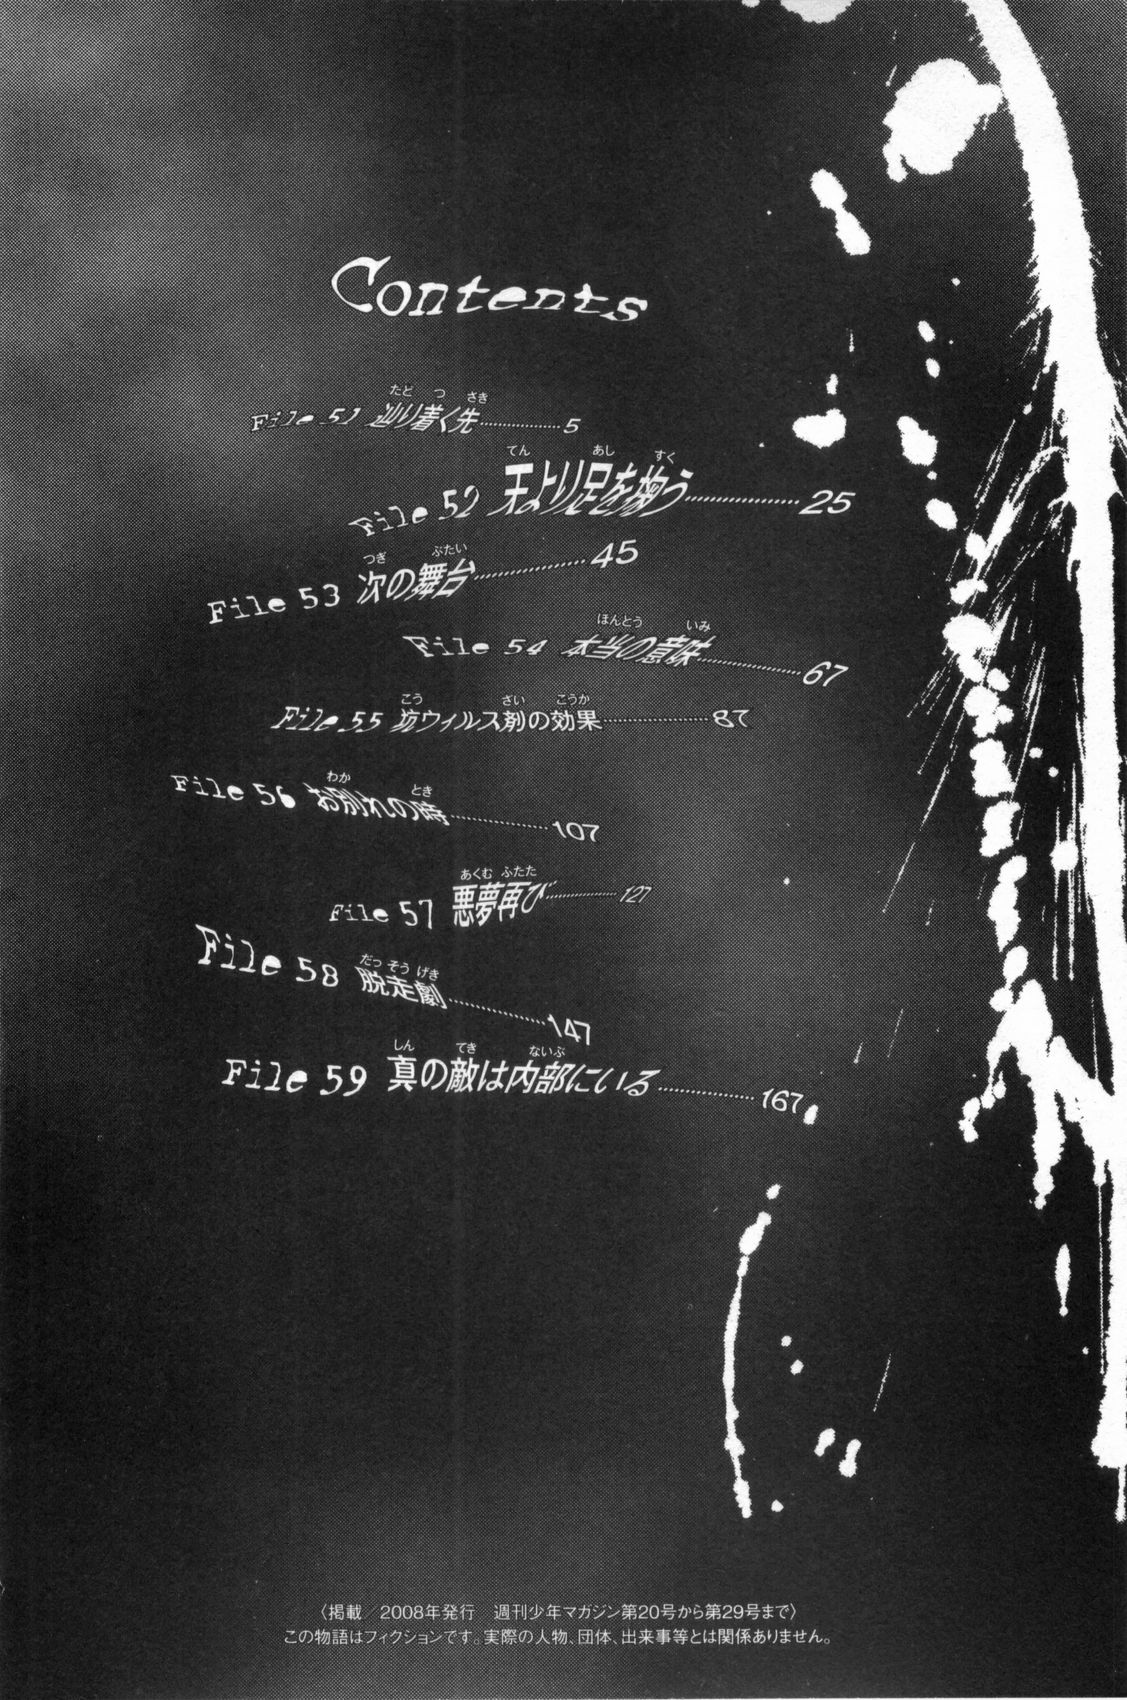 Contents
File 51 辿り着く先………………5
File 52 天より足を掬う………………25
File 53 次の舞台………………45
File 54 本当の意味………………67
File 55 抗ウィルス剤の効果………………87
File 56 お別れの時………………107
File 57 悪夢再び………………127
File 58 脱走劇………………147
File 59 真の敵は内部にいる………………167
〈掲載／2008年発行　週刊少年マガジン第20号から第29号まで〉
この物語はフィクションです。実際の人物、団体、出来事等とは関係ありません。